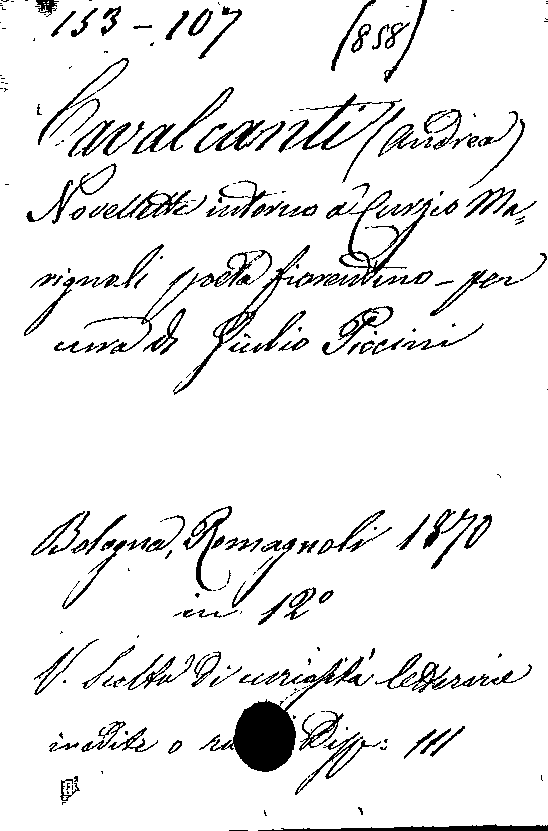 153 - 107 (858)
Cavalcanti (Andrea)
Novellette intorno a Curzio Ma=
rignoli poeta fiorentino - per
cura di Giulio Piccini
Bologna, Romagnoli 1870
in 12°
V. Scelta di curiosità letterarie
inedite o ra Disp: 111